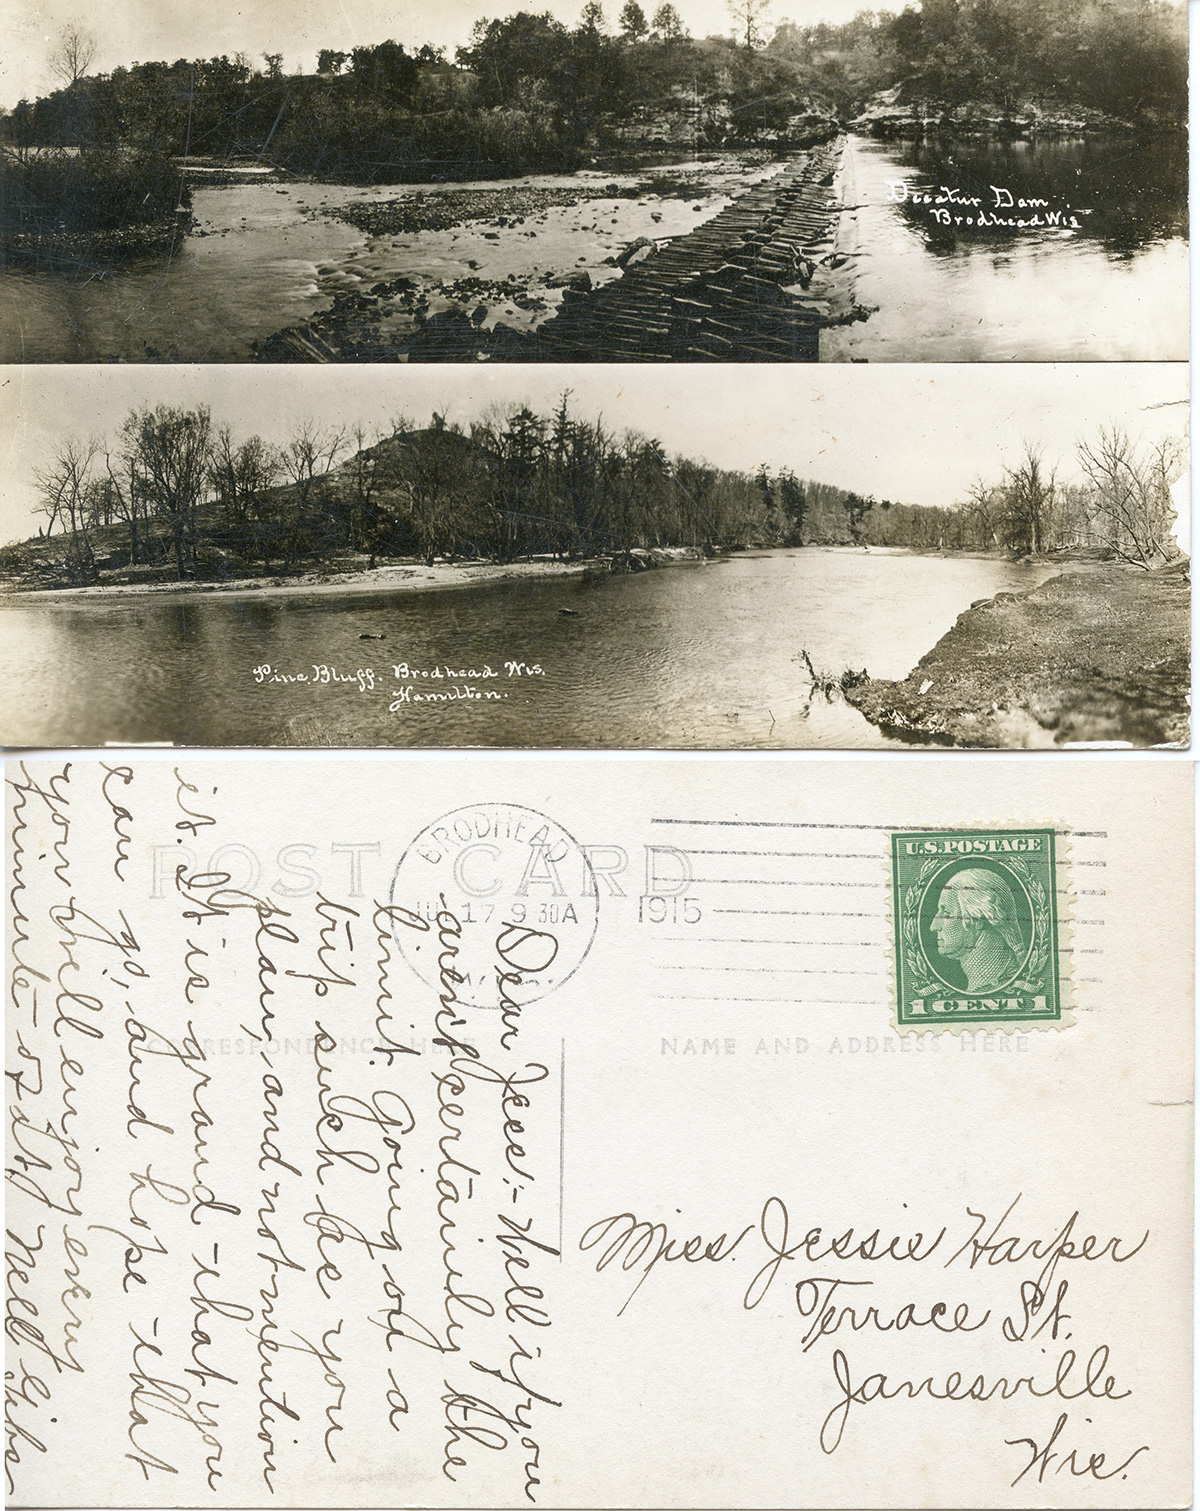 Decatur Dam.
Brodhead Wis
Pine Bluff. Brodhead Wis.
Hamilton.
POST CARD
BRODHEAD
17 9 30A
1915
WIS.
U.S. POSTAGE
1 CENT 1
CORRESPONDENCE HERE
NAME AND ADDRESS HERE
Dear Jess:- Well if you
aren't certainly the
limit. Going on a
trip such as you
plan, and not mention
it. It is grand - that you
can go, and hope - that
you will enjoy every
minute - of it. Nell
Miss. Jessie Harper
Terrace St.
Janesville
Wis.